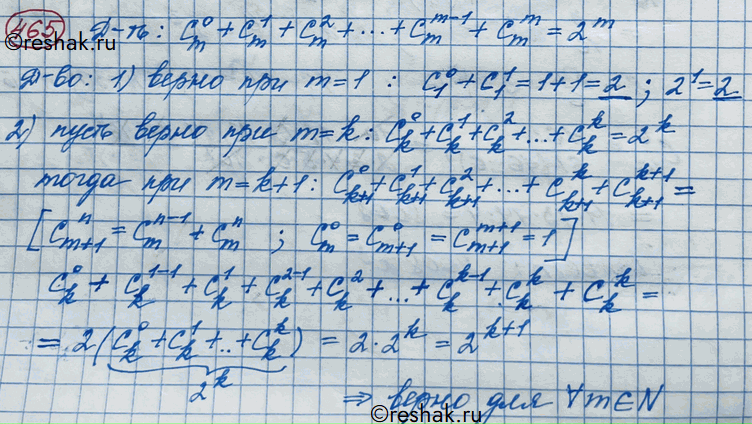 465 Д-ть: C_m^0 + C_m^1 + C_m^2 + ... + C_m^{m-1} + C_m^m = 2^m
©reshak.ru
Д-во: 1) верно при m=1 : C_1^0 + C_1^1 = 1+1 = 2 ; 2^1 = 2
2) пусть верно при m=k: C_k^0 + C_k^1 + C_k^2 + ... + C_k^k = 2^k
тогда при m=k+1: C_{k+1}^0 + C_{k+1}^1 + C_{k+1}^2 + ... + C_{k+1}^k + C_{k+1}^{k+1} =
[C_{m+1}^n = C_m^{n-1} + C_m^n ; C_m^0 = C_{m+1}^0 = C_{m+1}^{m+1} = 1]
C_k^0 + C_k^{1-1} + C_k^1 + C_k^{2-1} + C_k^2 + ... + C_k^{k-1} + C_k^k + C_k^k =
= 2(C_k^0 + C_k^1 + .. + C_k^k) = 2·2^k = 2^{k+1}
2^k
⇒ верно для ∀m∈N
©reshak.ru